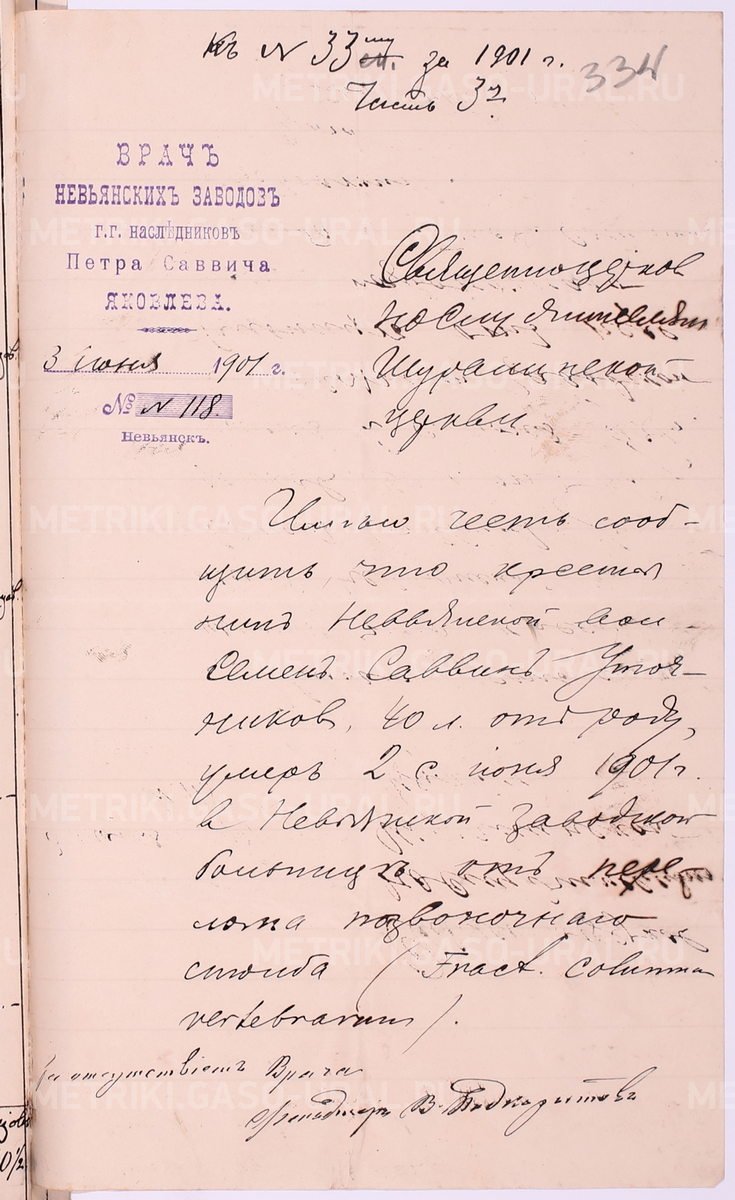 Къ № 33му за 1901 г.
334
Часть 3я
ВРАЧЪ
НЕВЬЯНСКИХЪ ЗАВОДОВЪ
г.г. наслѣдниковъ
Петра Саввича
ЯКОВЛЕВА.
3 июня 1901 г.
№ N 118.
Невьянск.
Священноцерков
нослужителям
Шуралинской
церкви
Имѣю честь сооб-
щить что крестья
нинъ Невьянской вол
Семенъ Саввинъ
40 л. отъ роду,
умеръ 2 с. июня 1901 г.
в Невьянской Заводской
больницѣ отъ пере-
лома позвоночнаго
столба (Fract. columna
vertebrarum).
За отсутствіемъ Врача
Фельдшеръ В.
METRIKI.GASO-URAL.RU